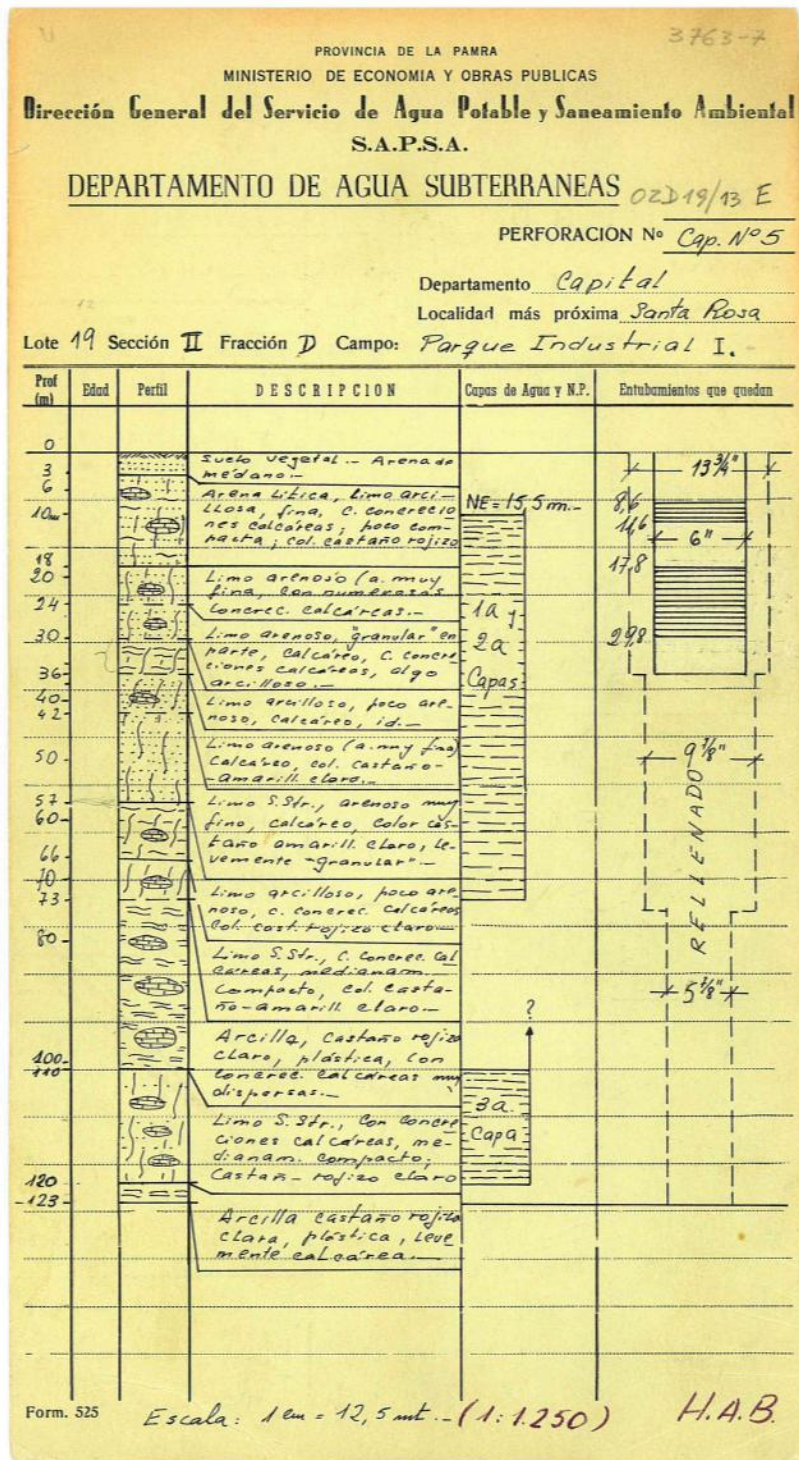 3763-7
PROVINCIA DE LA PAMRA
MINISTERIO DE ECONOMIA Y OBRAS PUBLICAS
Dirección General del Servicio de Agua Potable y Saneamiento Ambiental
S.A.P.S.A.
DEPARTAMENTO DE AGUA SUBTERRANEAS OZD19/13 E
PERFORACION Nº Cap. Nº 5
Departamento Capital
Localidad más próxima Santa Rosa
12
Lote 19 Sección II Fracción D Campo: Parque Industrial I.
Prof (m) Edad Perfil DESCRIPCION Capas de Agua y N.P. Entubamientos que quedan
0
3
6
10
18
20
24
30
36
40
42
50
57
60
66
70
73
80
100
110
120
123
Suelo vegetal.- Arena de
médano.-
Arena Lítica, Limo arci-
LLosa, fina, C. concrecio
nes calcáreas; poco com-
pacta; col. castaño rojizo
Limo arenoso (a. muy
fina, con numerosas
concrec. calcáreas.-
Limo arenoso, "granular" en
parte, calcáreo, C. concre-
ciones calcáreas, algo
arcilloso.-
Limo arcilloso, poco are-
noso, calcáreo, id.-
Limo arenoso (a. muy fina)
Calcáreo, col. castaño-
-amarill. claro.-
Limo S.Str., arenoso muy
fino, calcáreo, color cas-
taño amarill. claro, le-
vemente "granular".-
Limo arcilloso, poco are-
noso, c. concrec. calcáreas
Col. cast. rojizo claro.-
Limo S.Str., C. concrec. cal
cáreas, medianam.
Compacto, col. casta-
ño-amarill. claro.-
Arcilla, castaño rojizo
claro, plástica, con
concrec. calcáreas muy
dispersas.-
Limo S.Str., con concre
ciones calcáreas, me-
dianam. compacto;
Castañ- rojizo claro
Arcilla castaño rojizo
clara, plástica, leve
mente calcárea.-
NE = 15,5 m.-
1a y
2a
Capas
?
3a
Capa
13 3/4"
8,6
11,6
6"
17,8
29,8
9 7/8"
RELLENADO
5 7/8"
Form. 525 Escala: 1 cm = 12,5 mt.- (1:1.250) H.A.B.